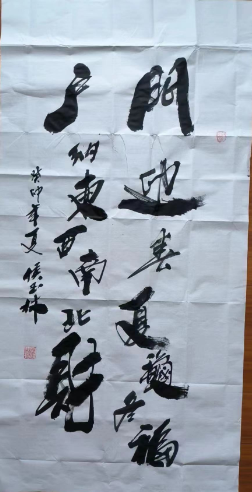 門迎春夏秋冬福
户纳東西南北财
癸卯年夏侯玉林